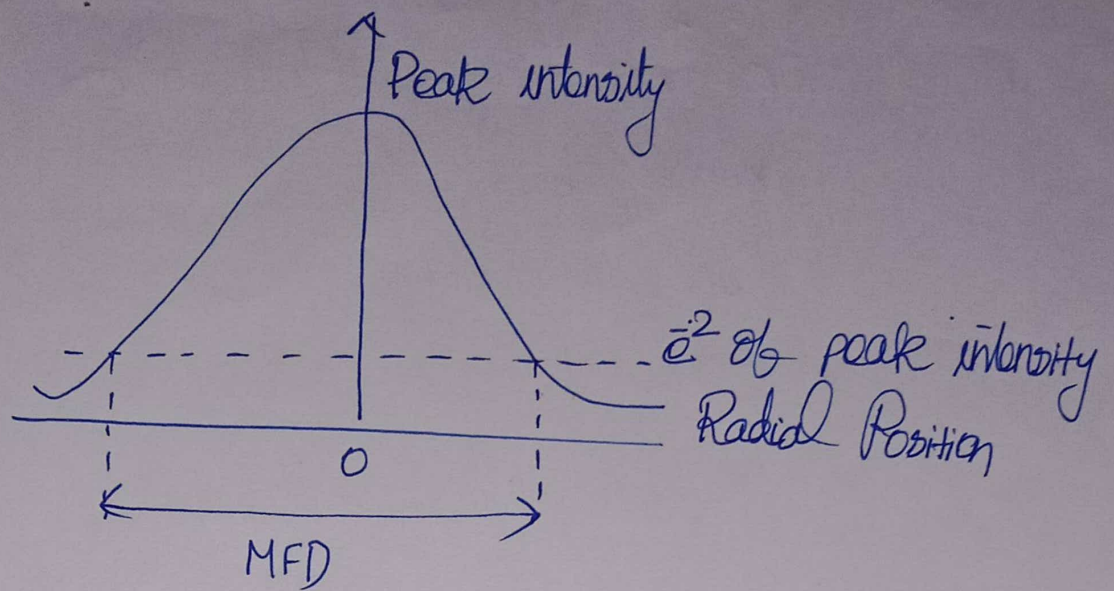 Peak intensity
e⁻² of peak intensity
Radial Position
0
MFD